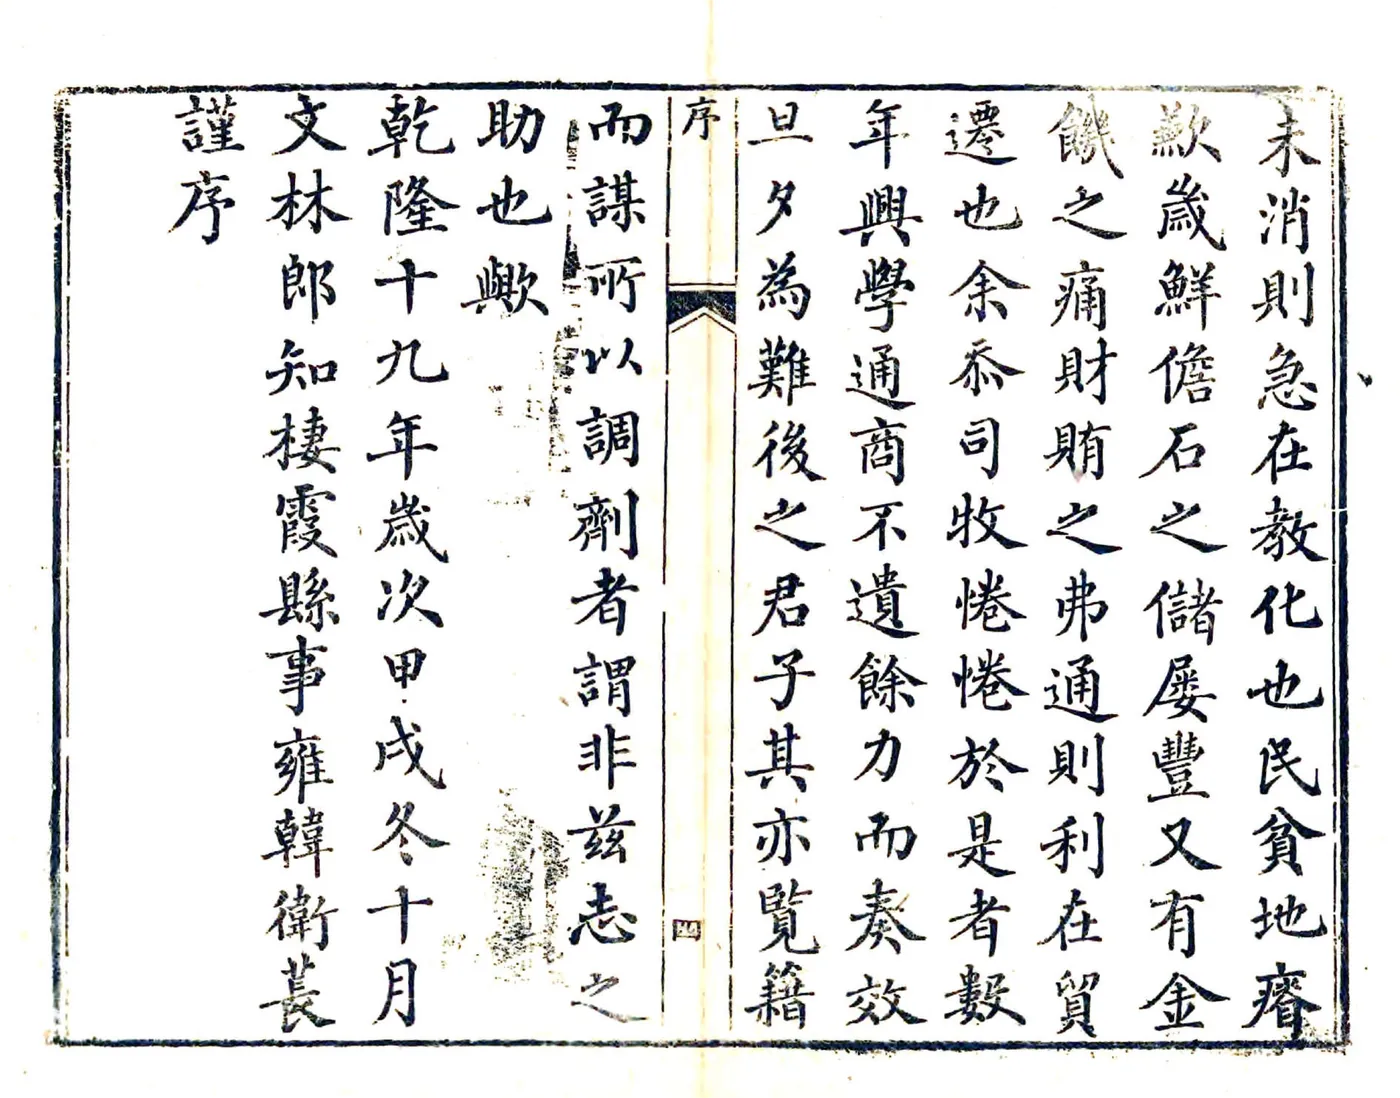 未消則急在教化也民貧地瘠
歉歲鮮儋石之儲屡豐又有金
饑之痛財賄之弗通則利在貿
遷也余忝司牧惓惓於是者數
年興學通商不遺餘力而奏效
旦夕為難後之君子其亦覧籍
序
四
而謀所以調劑者謂非兹志之
助也歟
乾隆十九年歲次甲戌冬十月
文林郎知棲霞縣事雍韓衛萇
謹序